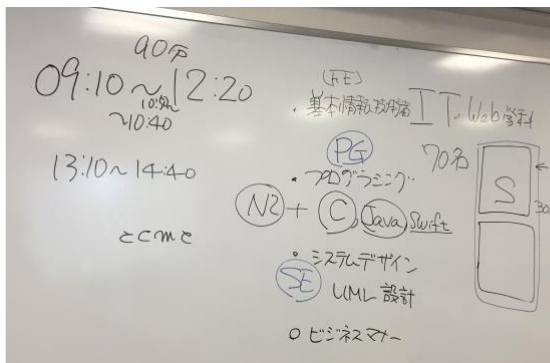 90分
09:10~12:20
10:50~
~10:40
13:10~14:40
(FE)
・基本情報技術者 IT・Web学科
PG
70名
・プログラミング
N2 + C, Java, Swift
S
30
・システムデザイン
SE UML 設計
○ ビジネスマナー